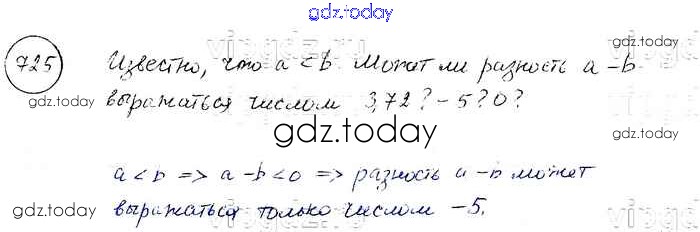 gdz.today
725 Известно, что a < b. Может ли разность a - b
gdz.today gdz.today
выражаться числом 3,72? -5? 0?
gdz.today
a < b => a - b < 0 => разность a - b может
gdz.today gdz.today
выражаться только числом -5.
gdz.today